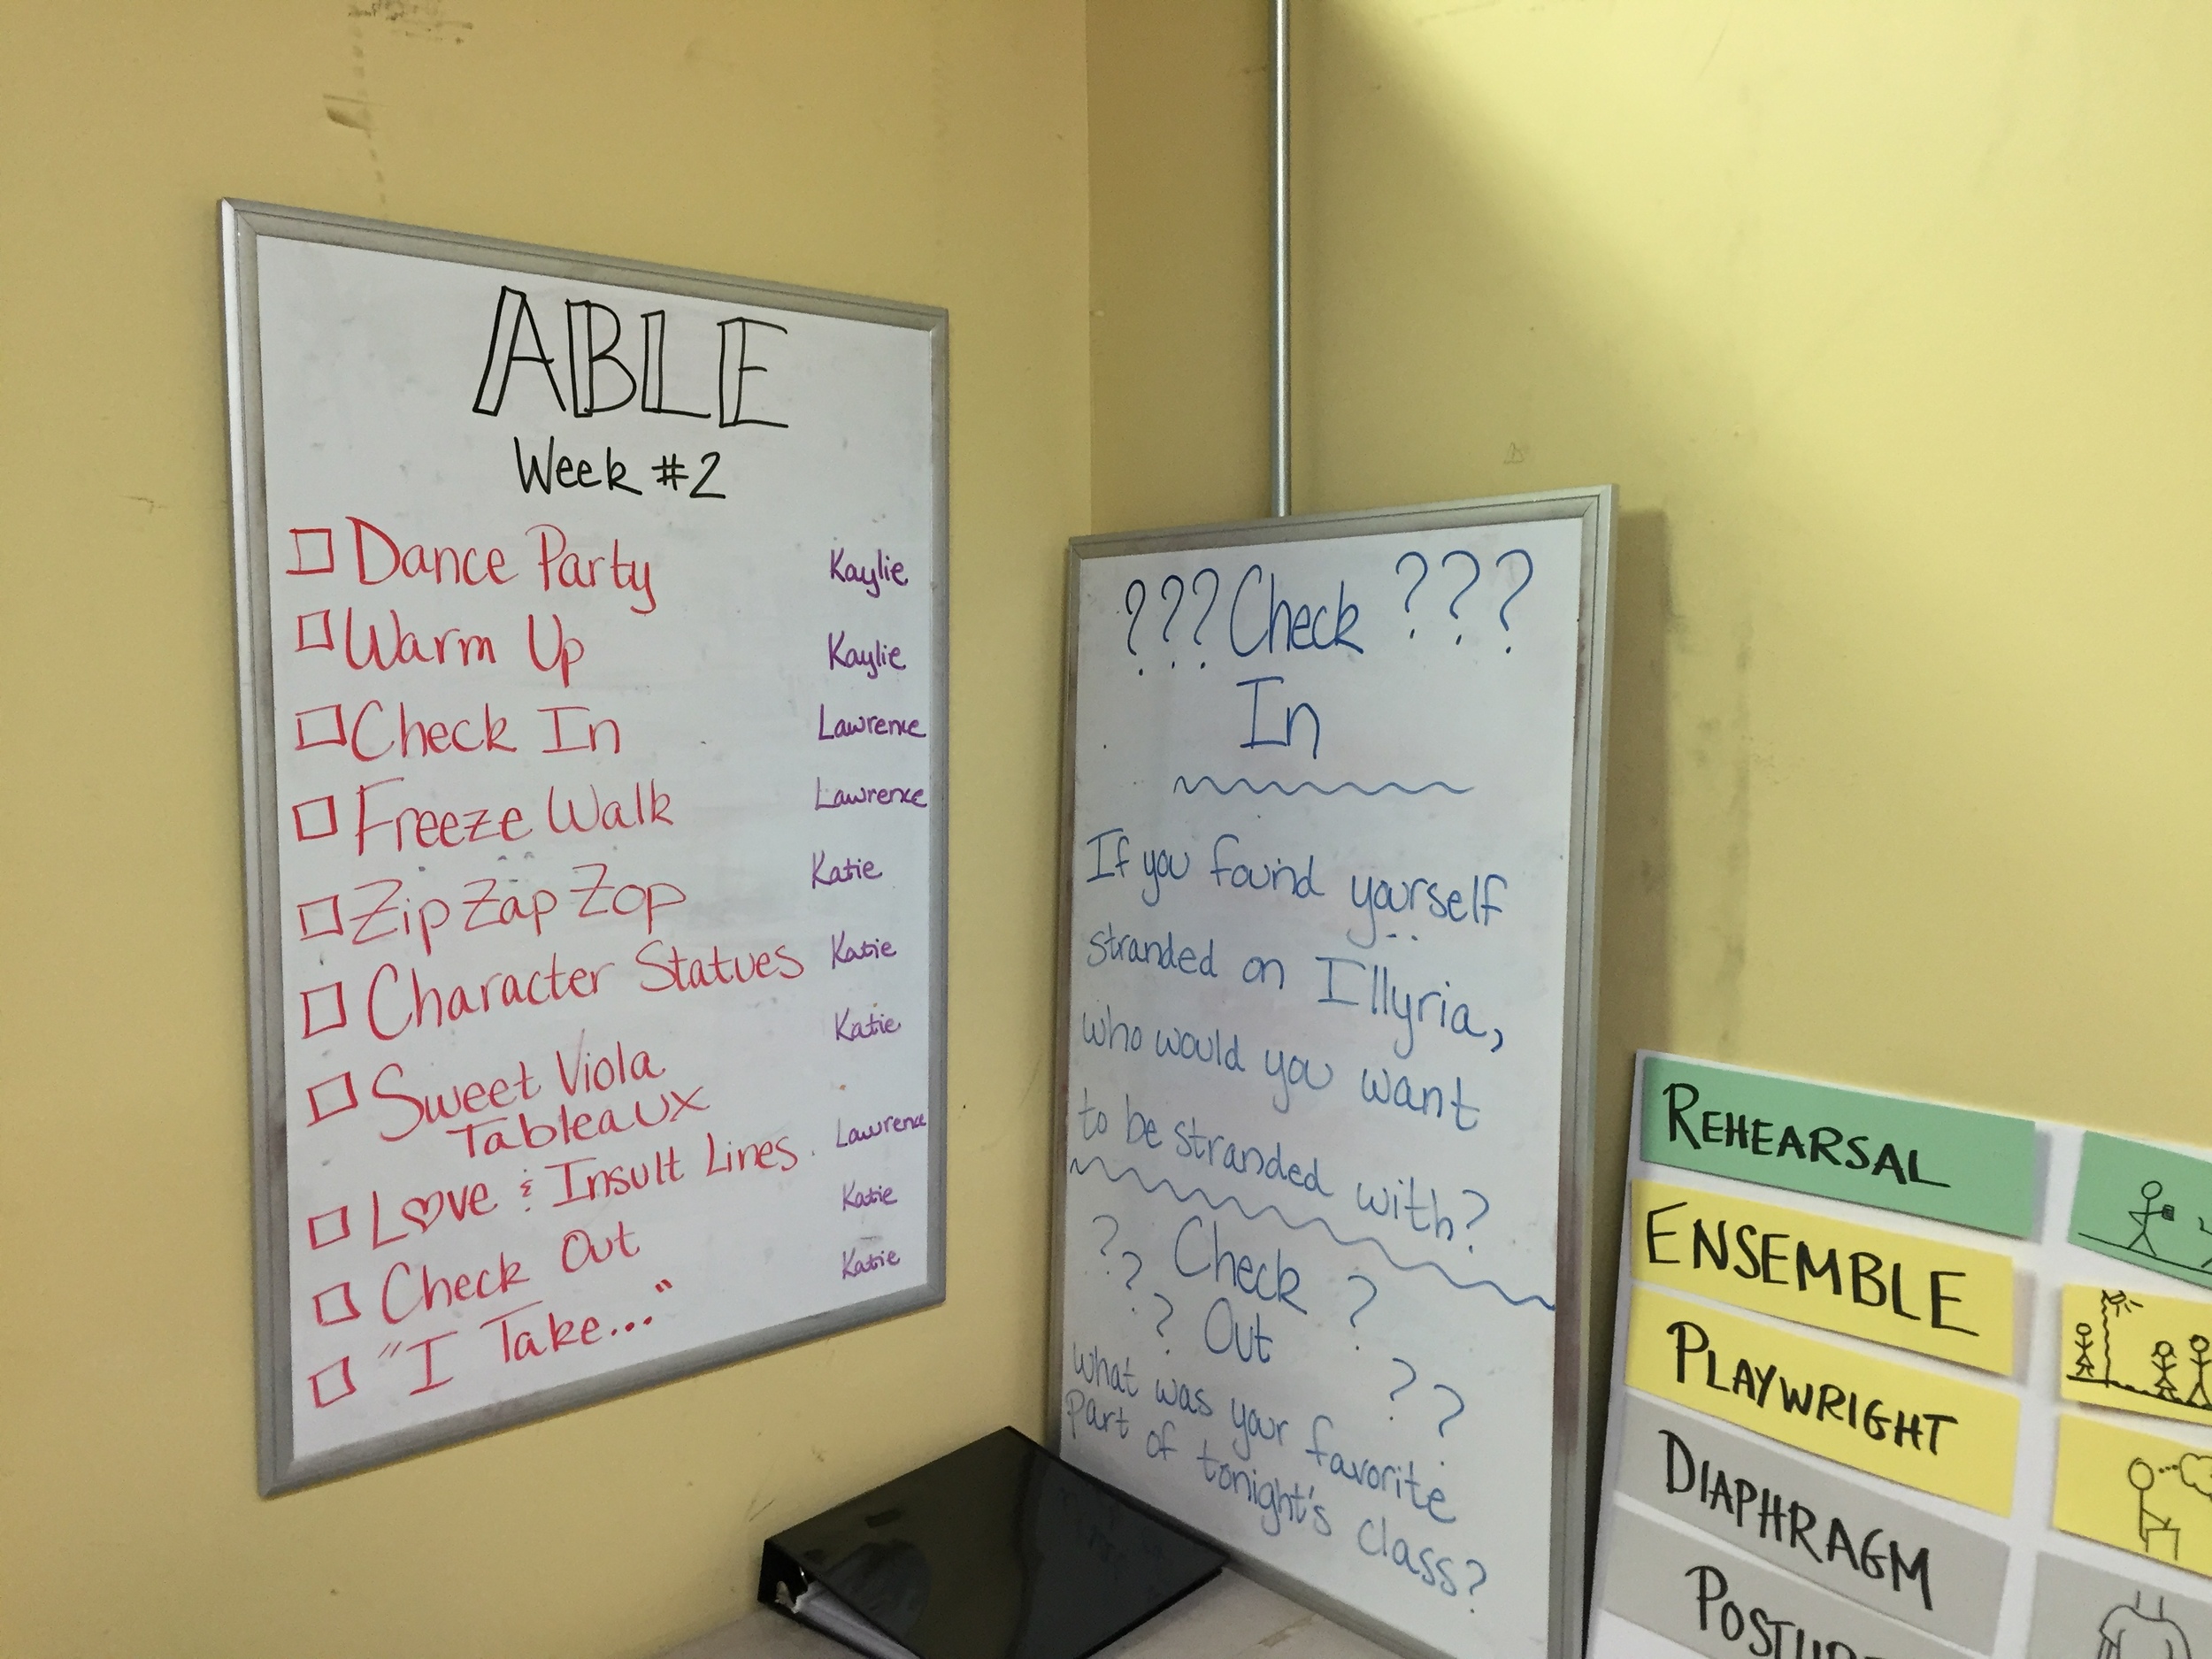 ABLE
Week #2
Dance Party Kaylie
Warm Up Kaylie
Check In Lawrence
Freeze Walk Lawrence
Zip Zap Zop Katie
Character Statues Katie
Sweet Viola Katie
Tableaux
Love & Insult Lines Lawrence
Check Out Katie
"I Take..." Katie
??? Check ???
In
If you found yourself
stranded on Illyria,
who would you want
to be stranded with?
?? Check ?
? Out ??
What was your favorite
Part of tonight's class?
REHEARSAL
ENSEMBLE
PLAYWRIGHT
DIAPHRAGM